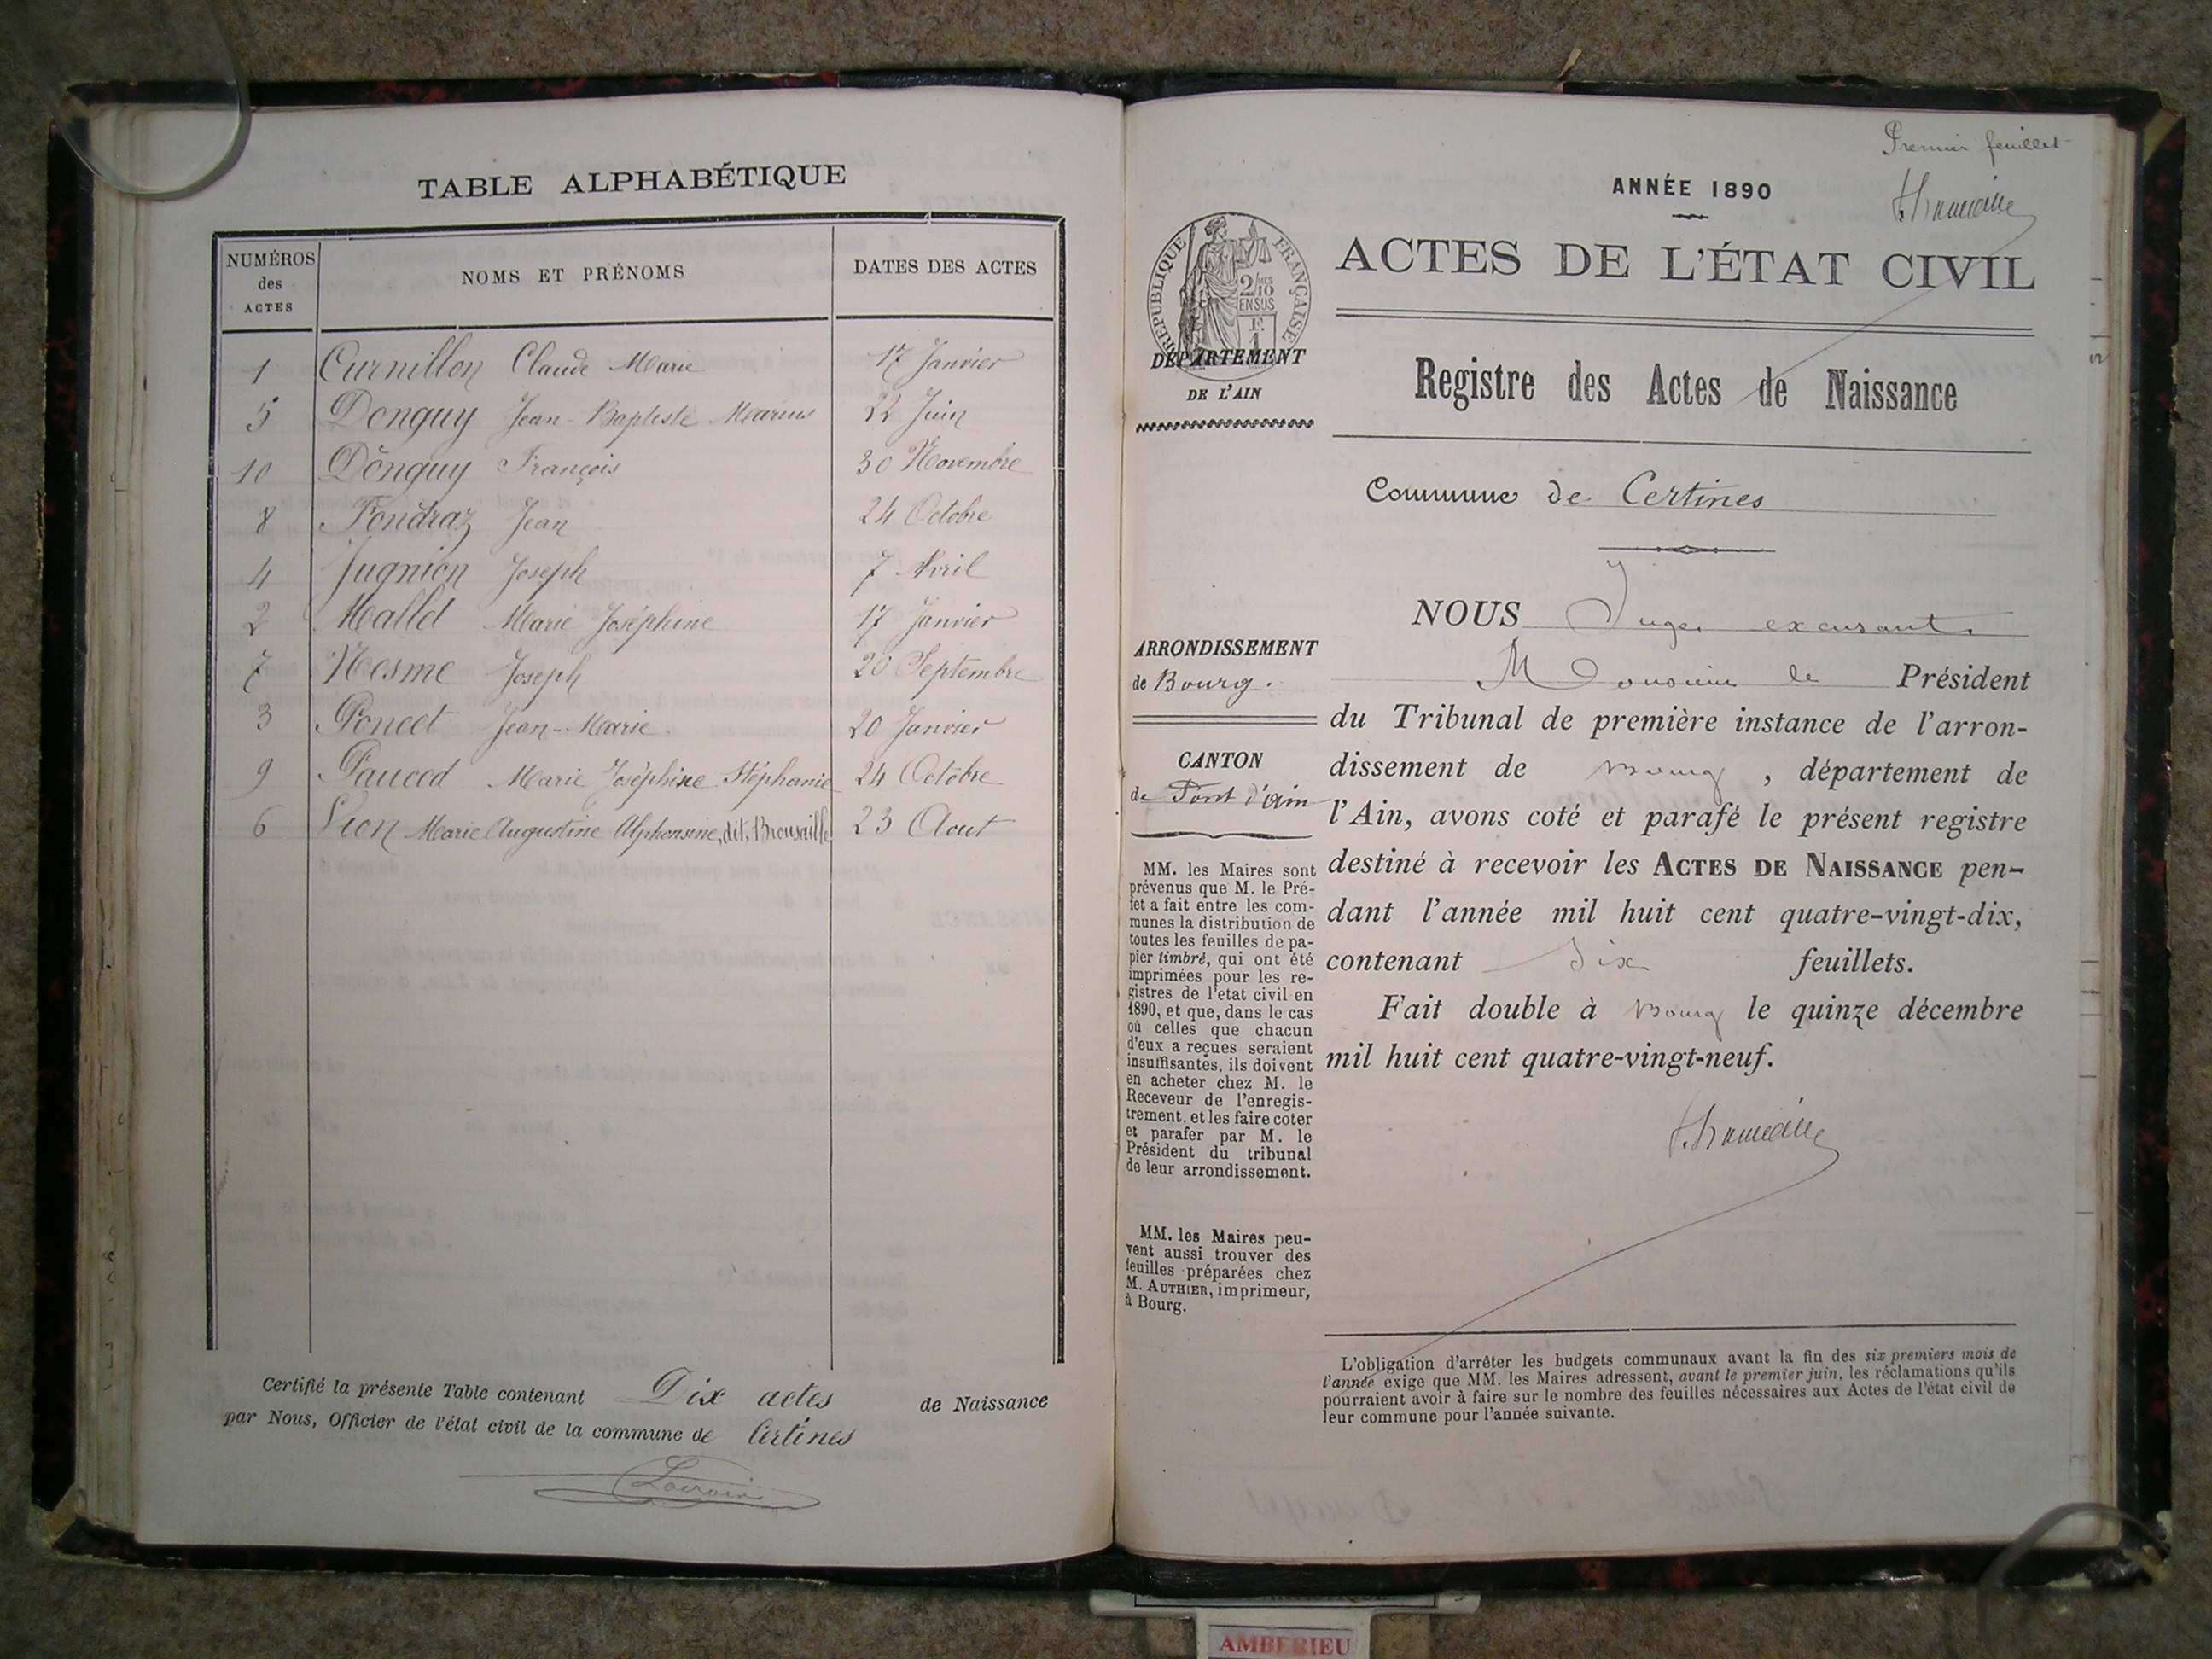 TABLE ALPHABÉTIQUE
NUMÉROS des ACTES
NOMS ET PRÉNOMS
DATES DES ACTES
1 Curnillon Claude Marie 17 Janvier
5 Donguy Jean-Baptiste Marius 22 Juin
10 Donguy François 30 Novembre
8 Fondraz Jean 24 Octobre
4 Jugnion Joseph 7 Avril
2 Mallet Marie Joséphine 17 Janvier
7 Nesme Joseph 20 Septembre
3 Poncet Jean-Marie 20 Janvier
9 Marie Joséphine Stéphanie 24 Octobre
6 Marie Augustine Alphonsine, dit, Brousaille 23 Aout
Certifié la présente Table contenant Dix actes de Naissance
par Nous, Officier de l'état civil de la commune de Certines
Premier feuillet
ANNÉE 1890
ACTES DE L'ÉTAT CIVIL
RÉPUBLIQUE FRANÇAISE
2/10
EN SUS
DÉPARTEMENT
DE L'AIN
Registre des Actes de Naissance
Commune de Certines
ARRONDISSEMENT
de Bourg.
CANTON
de Pont d'ain
MM. les Maires sont
prévenus que M. le Pré-
fet a fait entre les com-
munes la distribution de
toutes les feuilles de pa-
pier timbré, qui ont été
imprimées pour les re-
gistres de l'etat civil en
1890, et que, dans le cas
où celles que chacun
d'eux a reçues seraient
insuffisantes, ils doivent
en acheter chez M. le
Receveur de l'enregis-
trement, et les faire coter
et parafer par M. le
Président du tribunal
de leur arrondissement.
MM. les Maires peu-
vent aussi trouver des
feuilles préparées chez
M. AUTHIER, imprimeur,
à Bourg.
NOUS Juge, excusant
Monsieur le Président
du Tribunal de première instance de l'arron-
dissement de Bourg, département de
l'Ain, avons coté et parafé le présent registre
destiné à recevoir les ACTES DE NAISSANCE pen-
dant l'année mil huit cent quatre-vingt-dix,
contenant Six feuillets.
Fait double à Bourg le quinze décembre
mil huit cent quatre-vingt-neuf.
L'obligation d'arrêter les budgets communaux avant la fin des six premiers mois de
l'année exige que MM. les Maires adressent, avant le premier juin, les réclamations qu'ils
pourraient avoir à faire sur le nombre des feuilles nécessaires aux Actes de l'état civil de
leur commune pour l'année suivante.
AMBERIEU